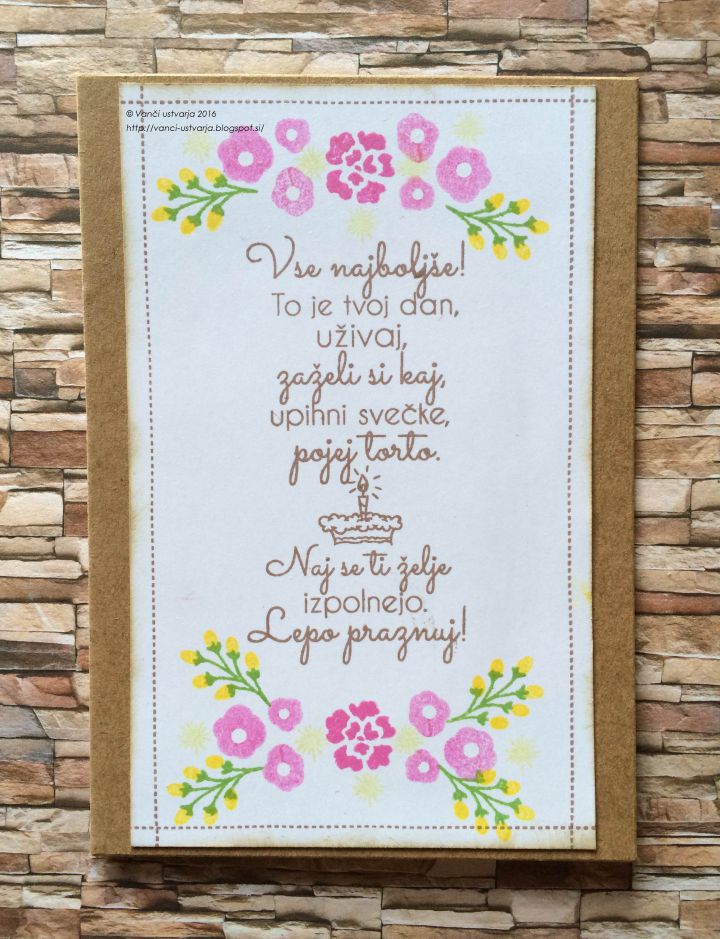 © Vanči ustvarja 2016
http://vanci-ustvarja.blogspot.si/
Vse najboljše!
To je tvoj dan,
uživaj,
zaželi si kaj,
upihni svečke,
pojej torto.
Naj se ti želje
izpolnejo.
Lepo praznuj!